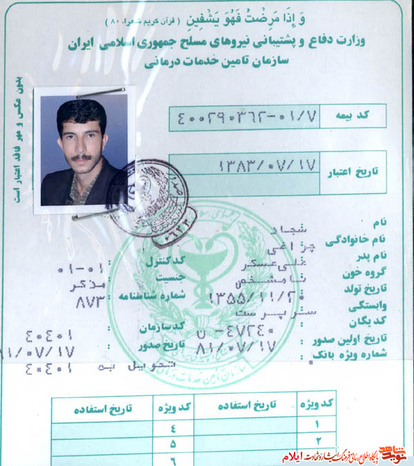 وَ إِذَا مَرِضْتُ فَهُوَ يَشْفِينِ (قرآن کریم شعراء ۸۰)
وزارت دفاع و پشتیبانی نیروهای مسلح جمهوری اسلامی ایران
سازمان تامین خدمات درمانی
بدون عکس و مهر فاقد اعتبار است
کد بیمه ۴۰۰۲۹۰۳۶۲-۰۱/۷
تاریخ اعتبار ۱۳۸۳/۰۷/۱۷
نام
نام خانوادگی چراغی
نام پدر علی عسکر کد کنترل ۰۱-۰۱
گروه خون نامشخص جنسیت مذکر
تاریخ تولد ۱۳۵۵/۱۱/۲۰ شماره شناسنامه ۸۷۳
وابستگی سرپرست
کد یگان ۴۷۲۴۰-ن کد سازمان ۴۰۴۰۱
تاریخ اولین صدور ۸۱/۰۷/۱۷ تاریخ صدور ۸۱/۰۷/۱۷
شماره ویژه بانک تحویل به ۴۰۴۰۱
کد ویژه تاریخ استفاده کد ویژه تاریخ استفاده
۱ ۴
۲ ۵
۶